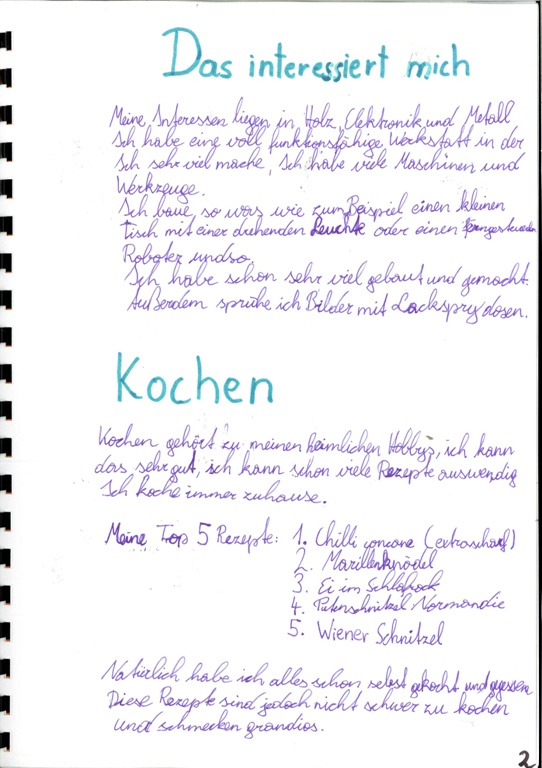 Das interessiert mich
Meine Interessen liegen in Holz, Elektronik und Metall
Ich habe eine voll funktionsfähige Werkstatt in der
Ich sehr viel mache, Ich habe viele Maschinen und
Werkzeuge.
Ich baue, so was wie zum Beispiel einen kleinen
Tisch mit einer drehenden Leuchte oder einen
Roboter undso.
Ich habe schon sehr viel gebaut und gemacht.
Außerdem sprühe ich Bilder mit Lackspry dosen.
Kochen
Kochen gehört zu meinen heimlichen Hobbys, ich kann
das sehr gut, ich kann schon viele Rezepte auswendig
Ich koche immer zuhause.
Meine Top 5 Rezepte: 1. Chilli concane (extrascharf)
2. Marillenknödel
3. Ei im Schlafrock
4. Putenschnitzel Normandie
5. Wiener Schnitzel
Natürlich habe ich alles schon selbst gekocht und gegessen
Diese Rezepte sind jedoch nicht schwer zu kochen
und schmecken grandios.
2